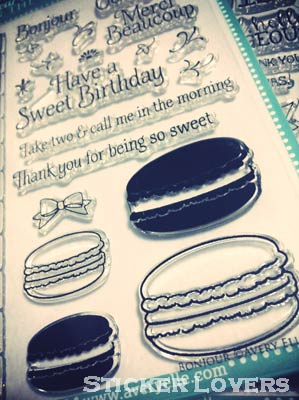 Bonjour
Merci
Beaucoup
Have a
Sweet Birthday
Take two & call me in the morning
Thank you for being so sweet
BONJOUR
AVERY ELLE
STICKER LOVERS